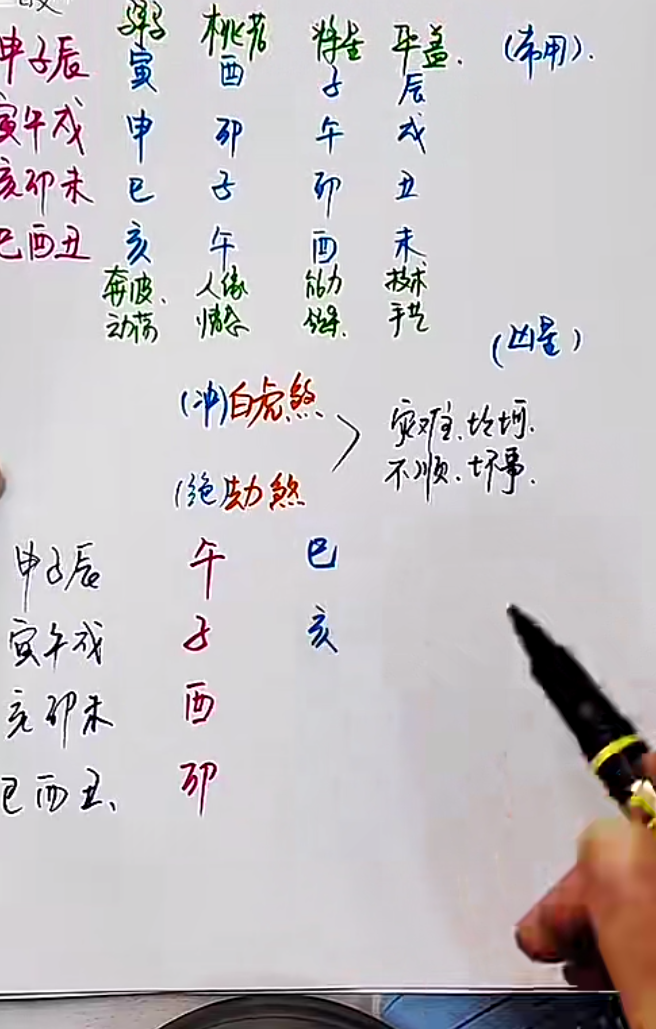 驿马 桃花 将星 华盖.
申子辰 寅 酉 子 辰 (常用).
寅午戌 申 卯 午 戌
亥卯未 巳 子 卯 丑
巳酉丑 亥 午 酉 未
奔波、 人缘 能力 技术
动荡 情态 手艺
(凶星)
(冲)白虎煞
灾难、坎坷.
不顺、坏事.
(绝)劫煞
申子辰 午 巳
寅午戌 子 亥
亥卯未 酉
巳酉丑、 卯